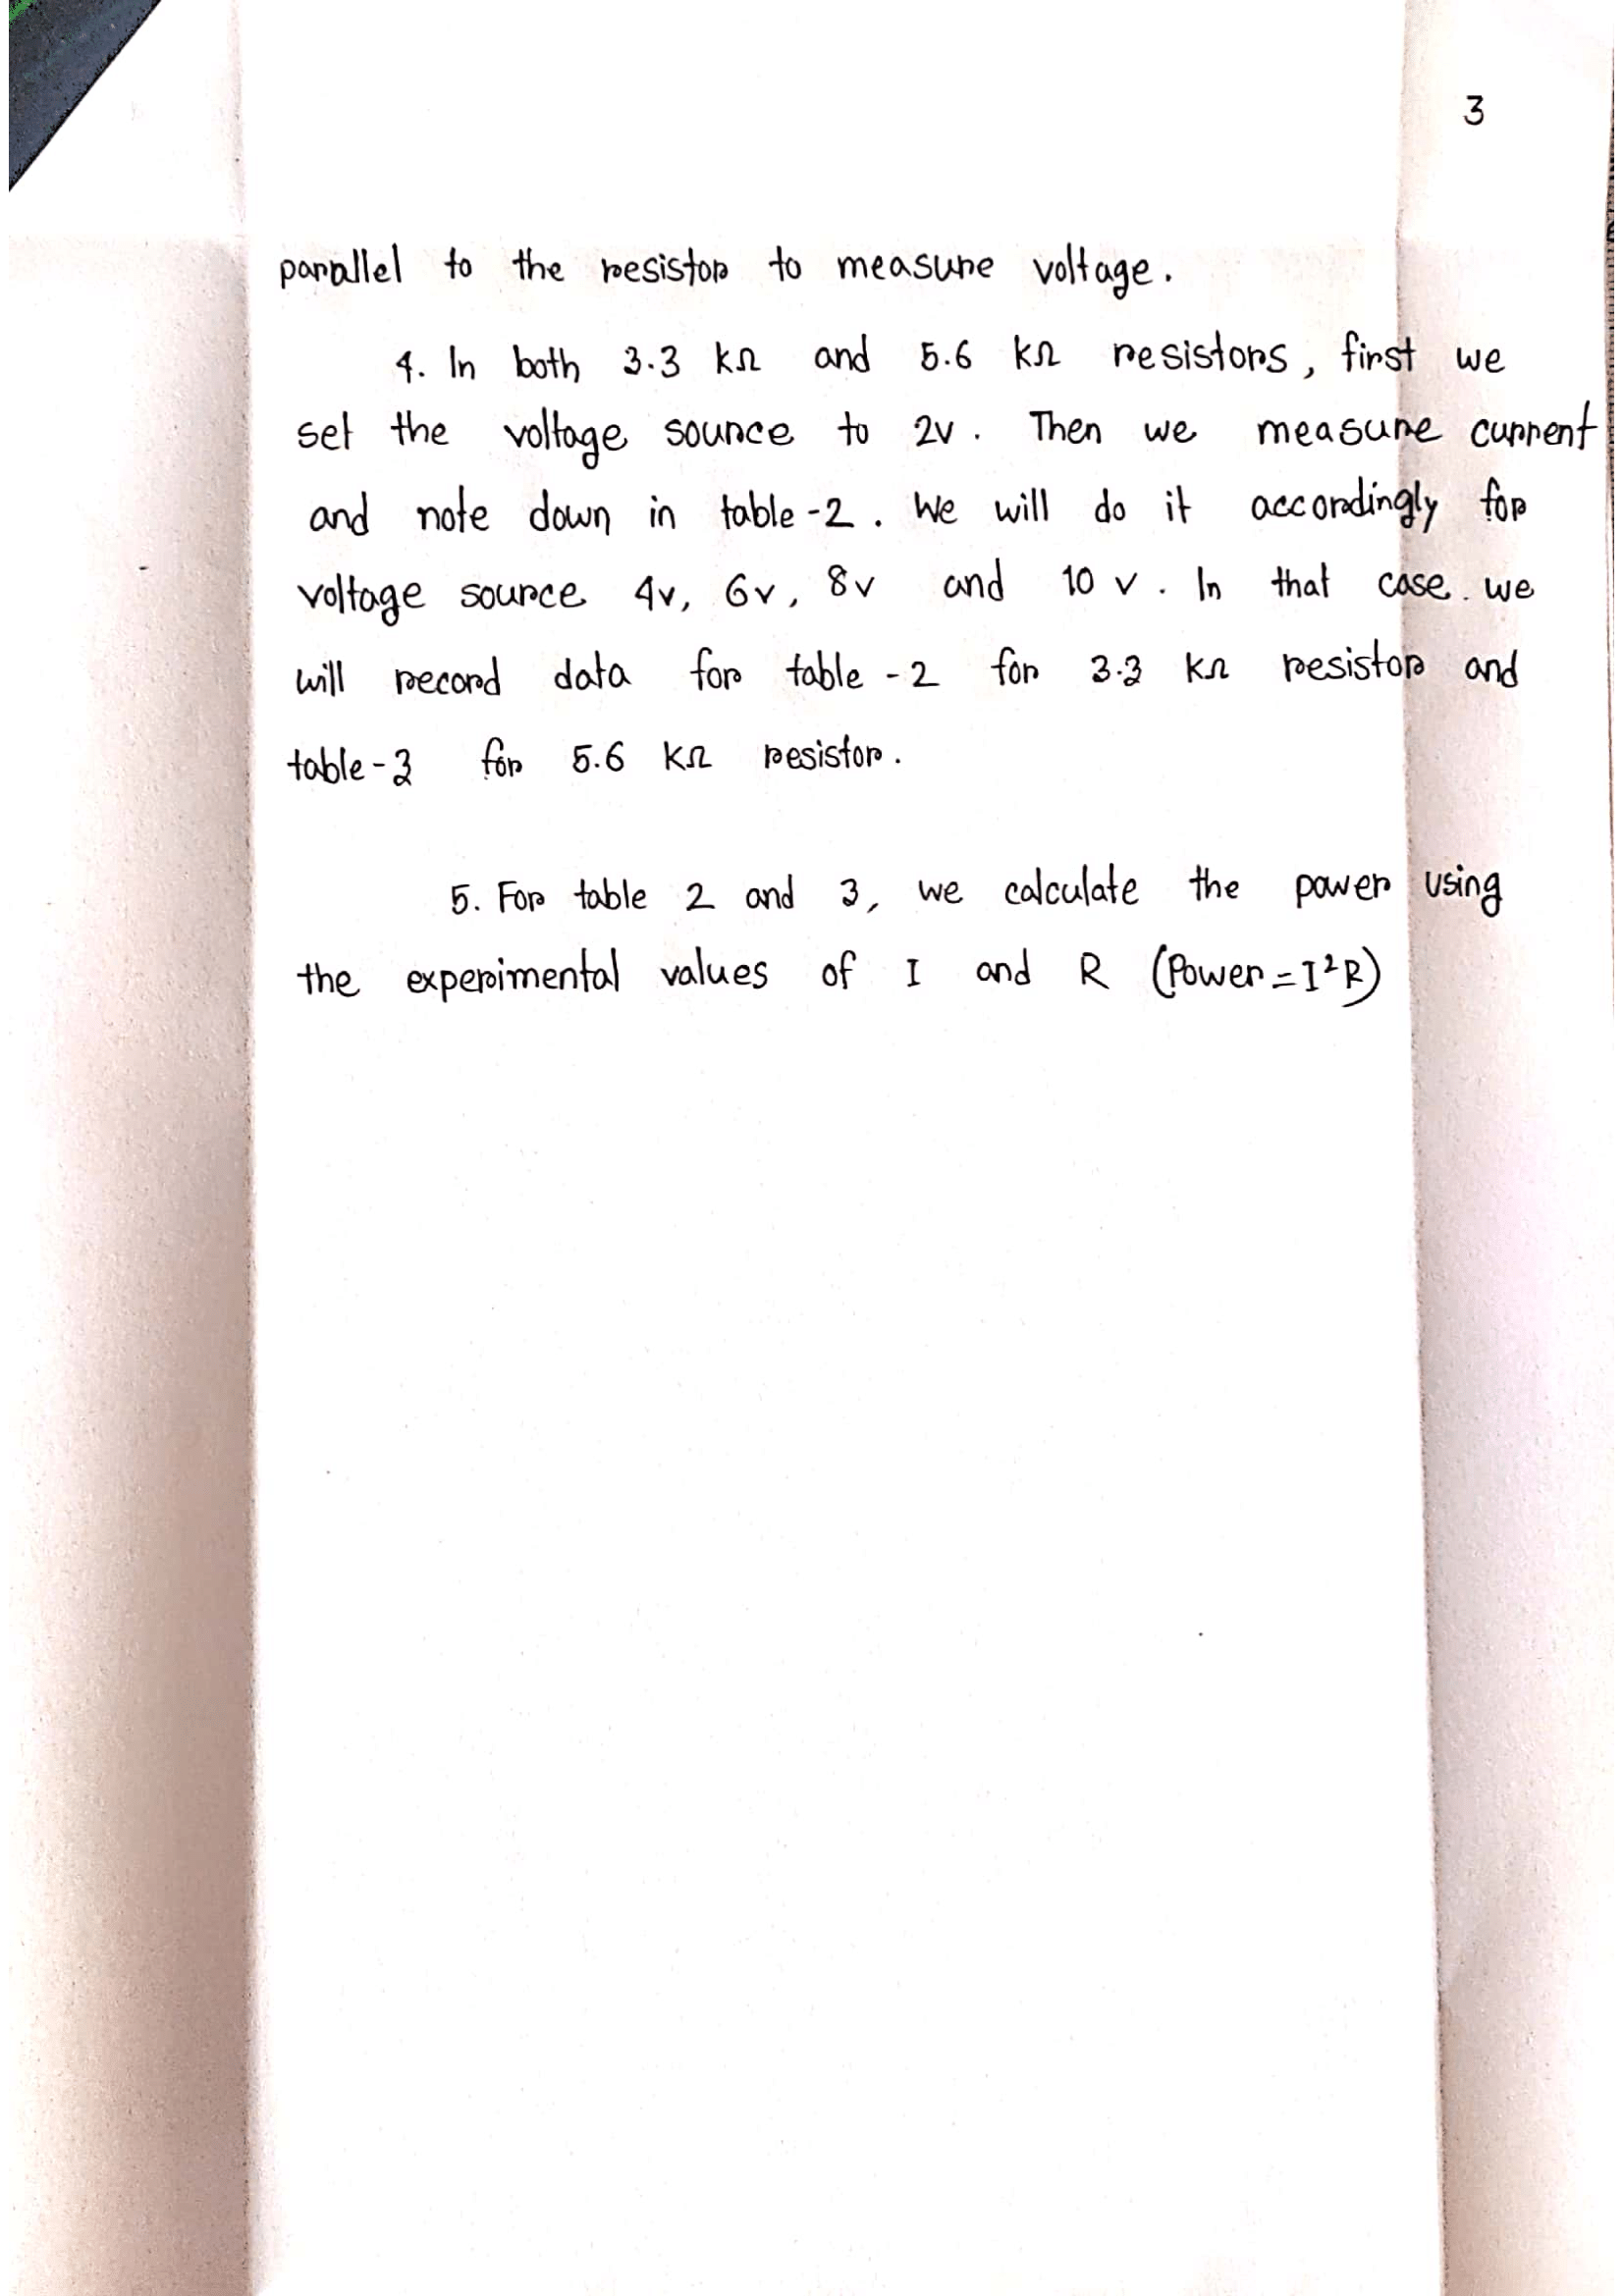 3
parallel to the resistor to measure voltage.
4. In both 3.3 kΩ and 5.6 kΩ resistors, first we
set the voltage source to 2v. Then we measure current
and note down in table-2. We will do it accordingly for
voltage source 4v, 6v, 8v and 10 v. In that case. we
will record data for table-2 for 3.3 kΩ resistor and
table-3 for 5.6 kΩ resistor.
5. For table 2 and 3, we calculate the power using
the experimental values of I and R (Power = I²R)